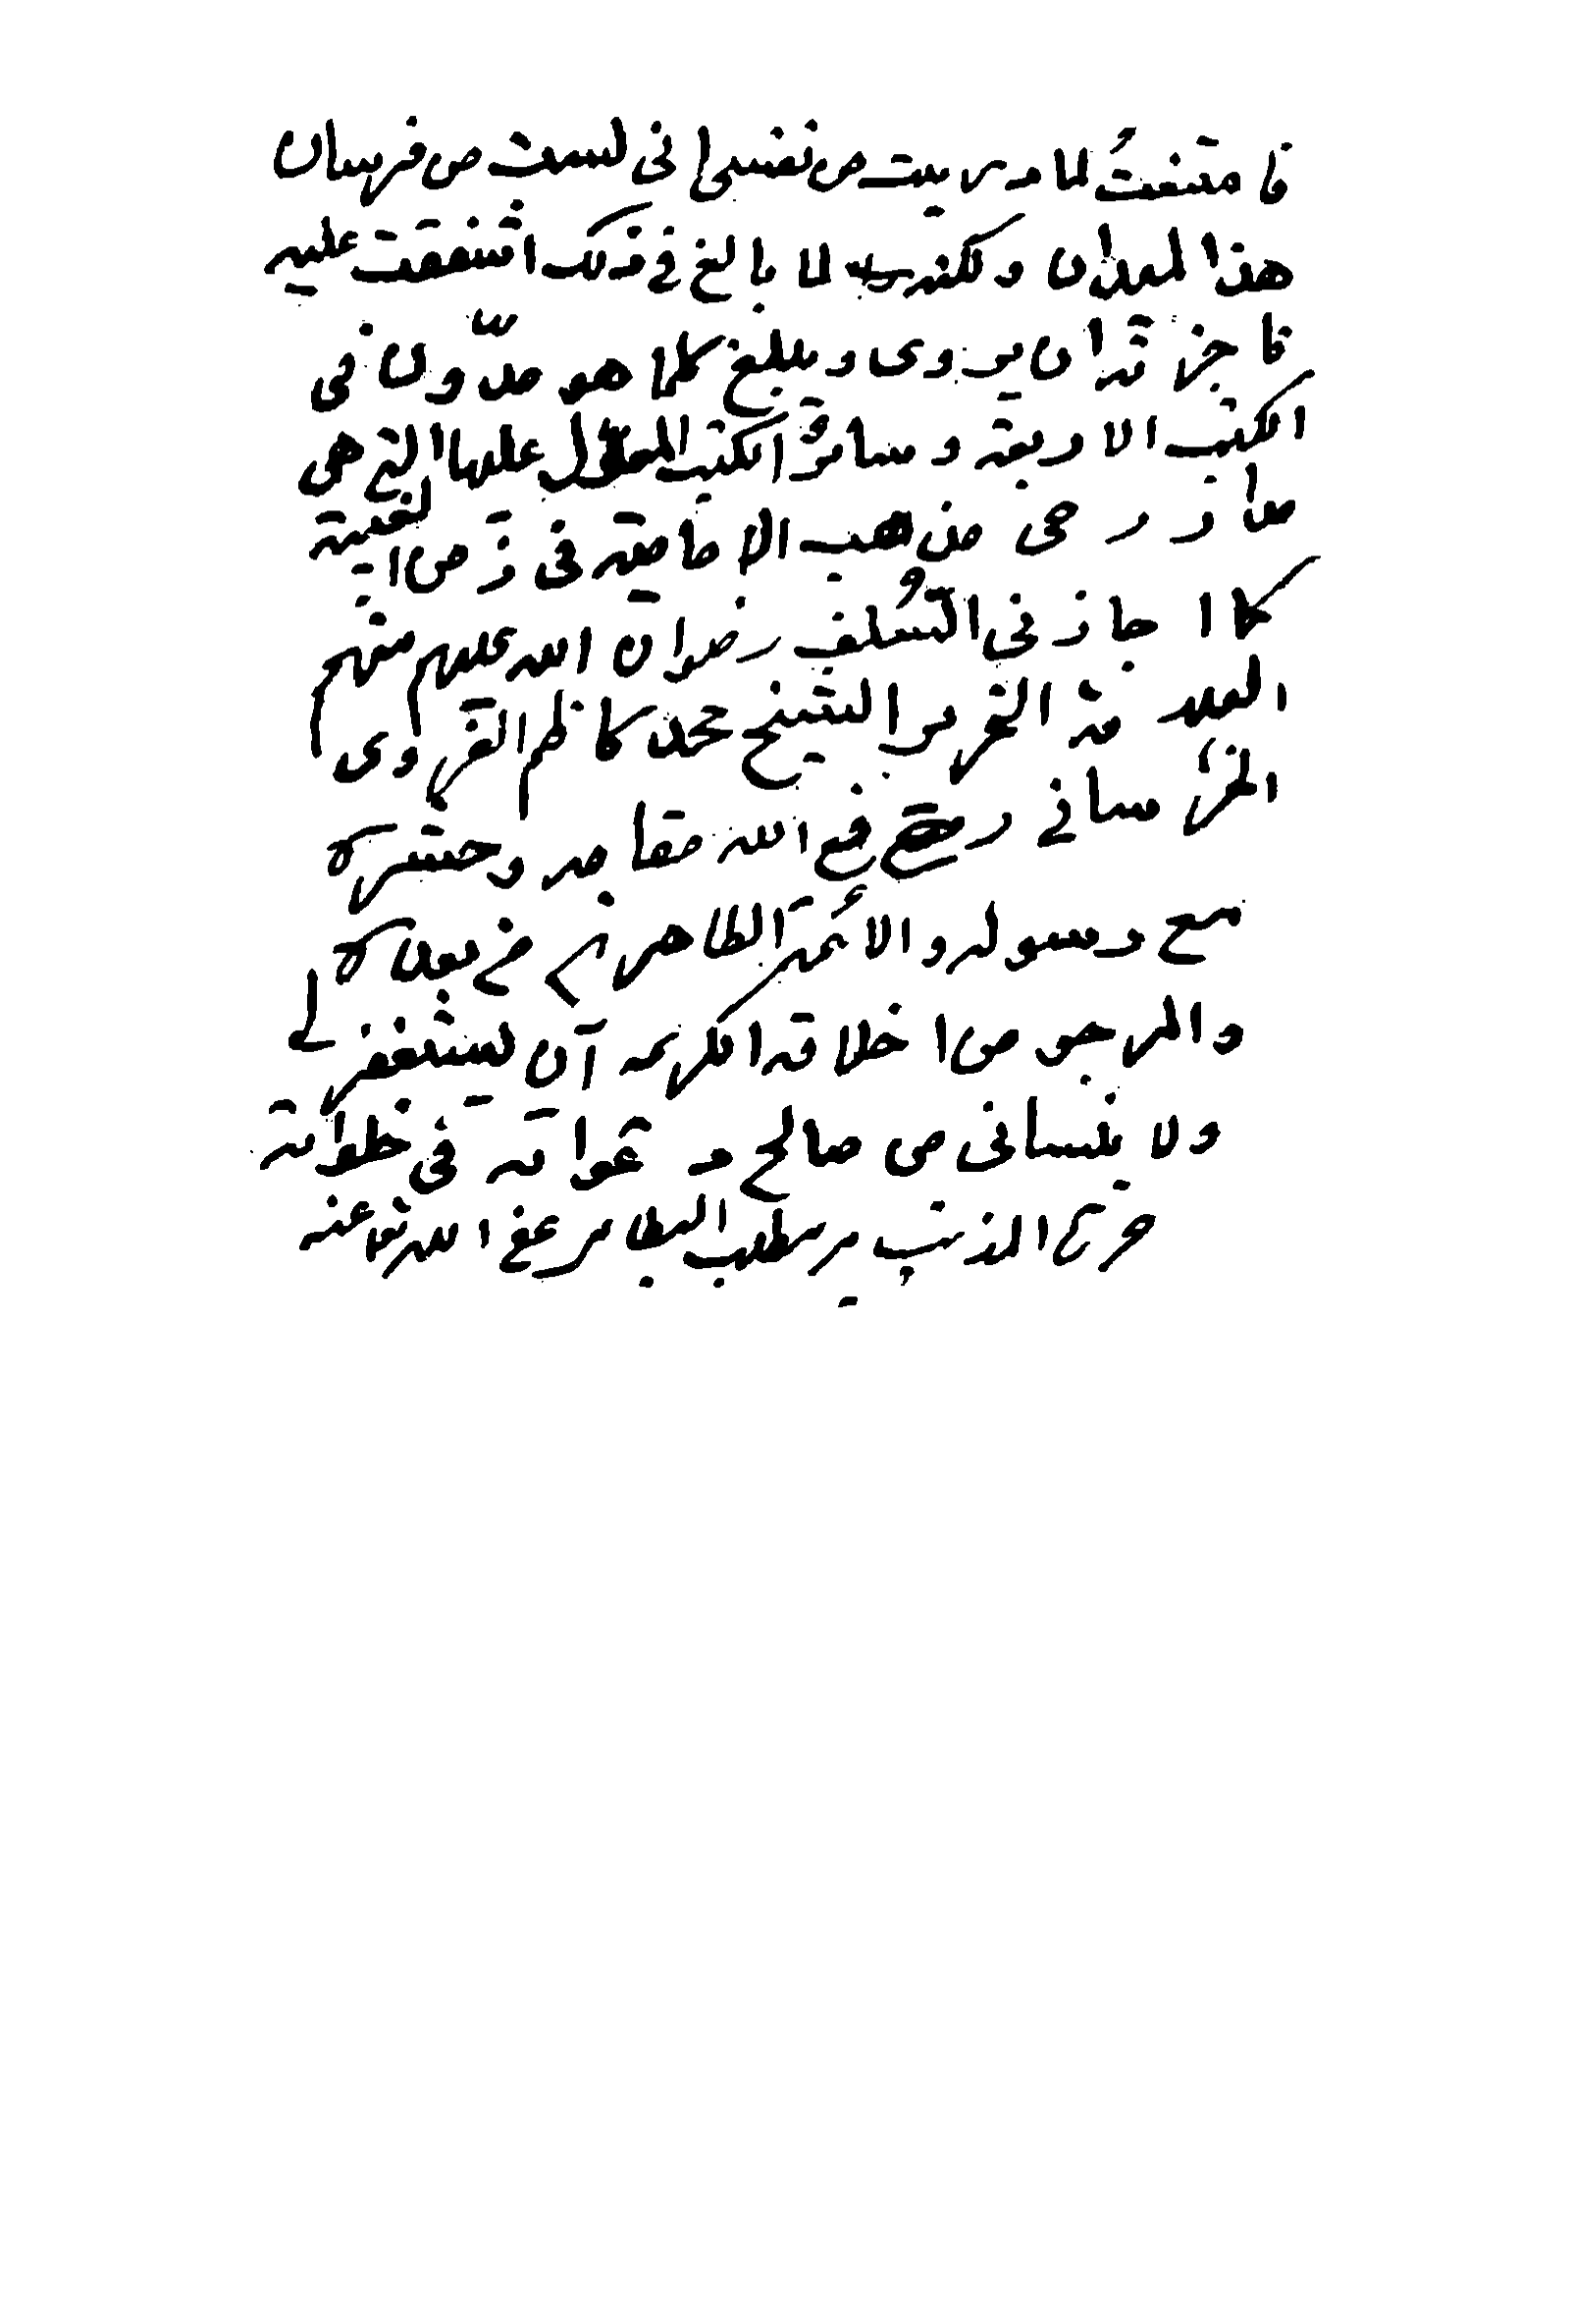 فامتنعتُ لما دريت من نفسي اني لست من فرسان
هذا الميدان ولكنه لما بالغ في ذلك اشفقت عليه
فاجزته ان يروى ويبلغ كلما هو مدّون فى
الكتب الاربعة وسائر الكتب المعوّل عليها التي هى
مدار رحى مذهب الامامية فى زمن الغيبة
كما اجازنى السلف رضوان الله عليهم منهم
العلامة النحرير الشيخ محمد كاظم الهروى
الخراسانى رفع الله مقامه وحشره
مع رسوله والائمة الطاهرين من بعده
والمرجو من اخلاقه الكريمه ان يستغفر لى
ولا ينسانى من صالح دعواته فى خلواته
المذنب عفى الله عنه